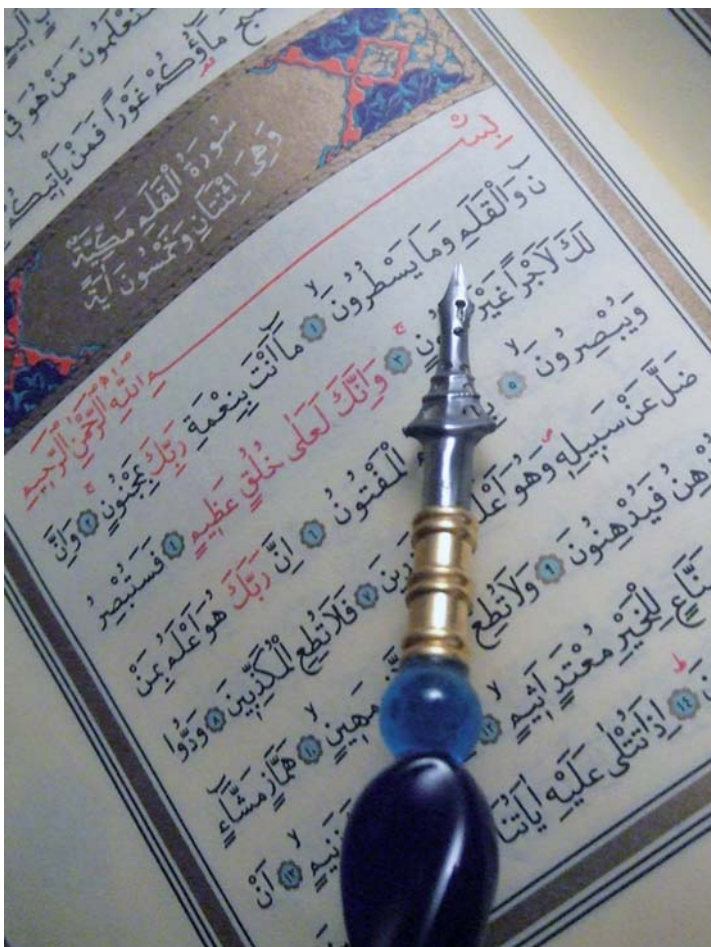 تَعْلَمُونَ مَنْ هُوَ فٖى
مَٓاؤُ۬كُمْ غَوْراً فَمَنْ يَأْتٖيكُمْ
سُورَةُ الْقَلَمِ مَكِّيَّةٌ
وَهِىَ اِثْنَتَانِ وَخَمْسُونَ اٰيَةً
بِسْمِ اللّٰهِ الرَّحْمٰنِ الرَّحٖيمِ
نٓ وَالْقَلَمِ وَمَا يَسْطُرُونَۙ ﴿١﴾ مَٓا اَنْتَ بِنِعْمَةِ رَبِّكَ بِمَجْنُونٍۚ ﴿٢﴾ وَاِنَّ
لَكَ لَاَجْراً غَيْرَ ﴿٣﴾ وَاِنَّكَ لَعَلٰى خُلُقٍ عَظٖيمٍ ﴿٤﴾ فَسَتُبْصِرُ
وَيُبْصِرُونَۙ ﴿٥﴾ الْمَفْتُونُ ﴿٦﴾ اِنَّ رَبَّكَ هُوَ اَعْلَمُ بِمَنْ
ضَلَّ عَنْ سَبٖيلِهٖ وَهُوَ اَعْلَمُ ﴿٧﴾ فَلَا تُطِعِ الْمُكَذِّبٖينَ ﴿٨﴾ وَدُّوا
فَيُدْهِنُونَ ﴿٩﴾ وَلَا تُطِعْ مَهٖينٍۙ ﴿١٠﴾ هَمَّازٍ مَشَّٓاءٍ
لِلْخَيْرِ مُعْتَدٍ اَثٖيمٍۙ ﴿١٢﴾ زَنٖيمٍۙ ﴿١٣﴾ اَنْ
﴿١٤﴾ اِذَا تُتْلٰى عَلَيْهِ اٰيَاتُنَا